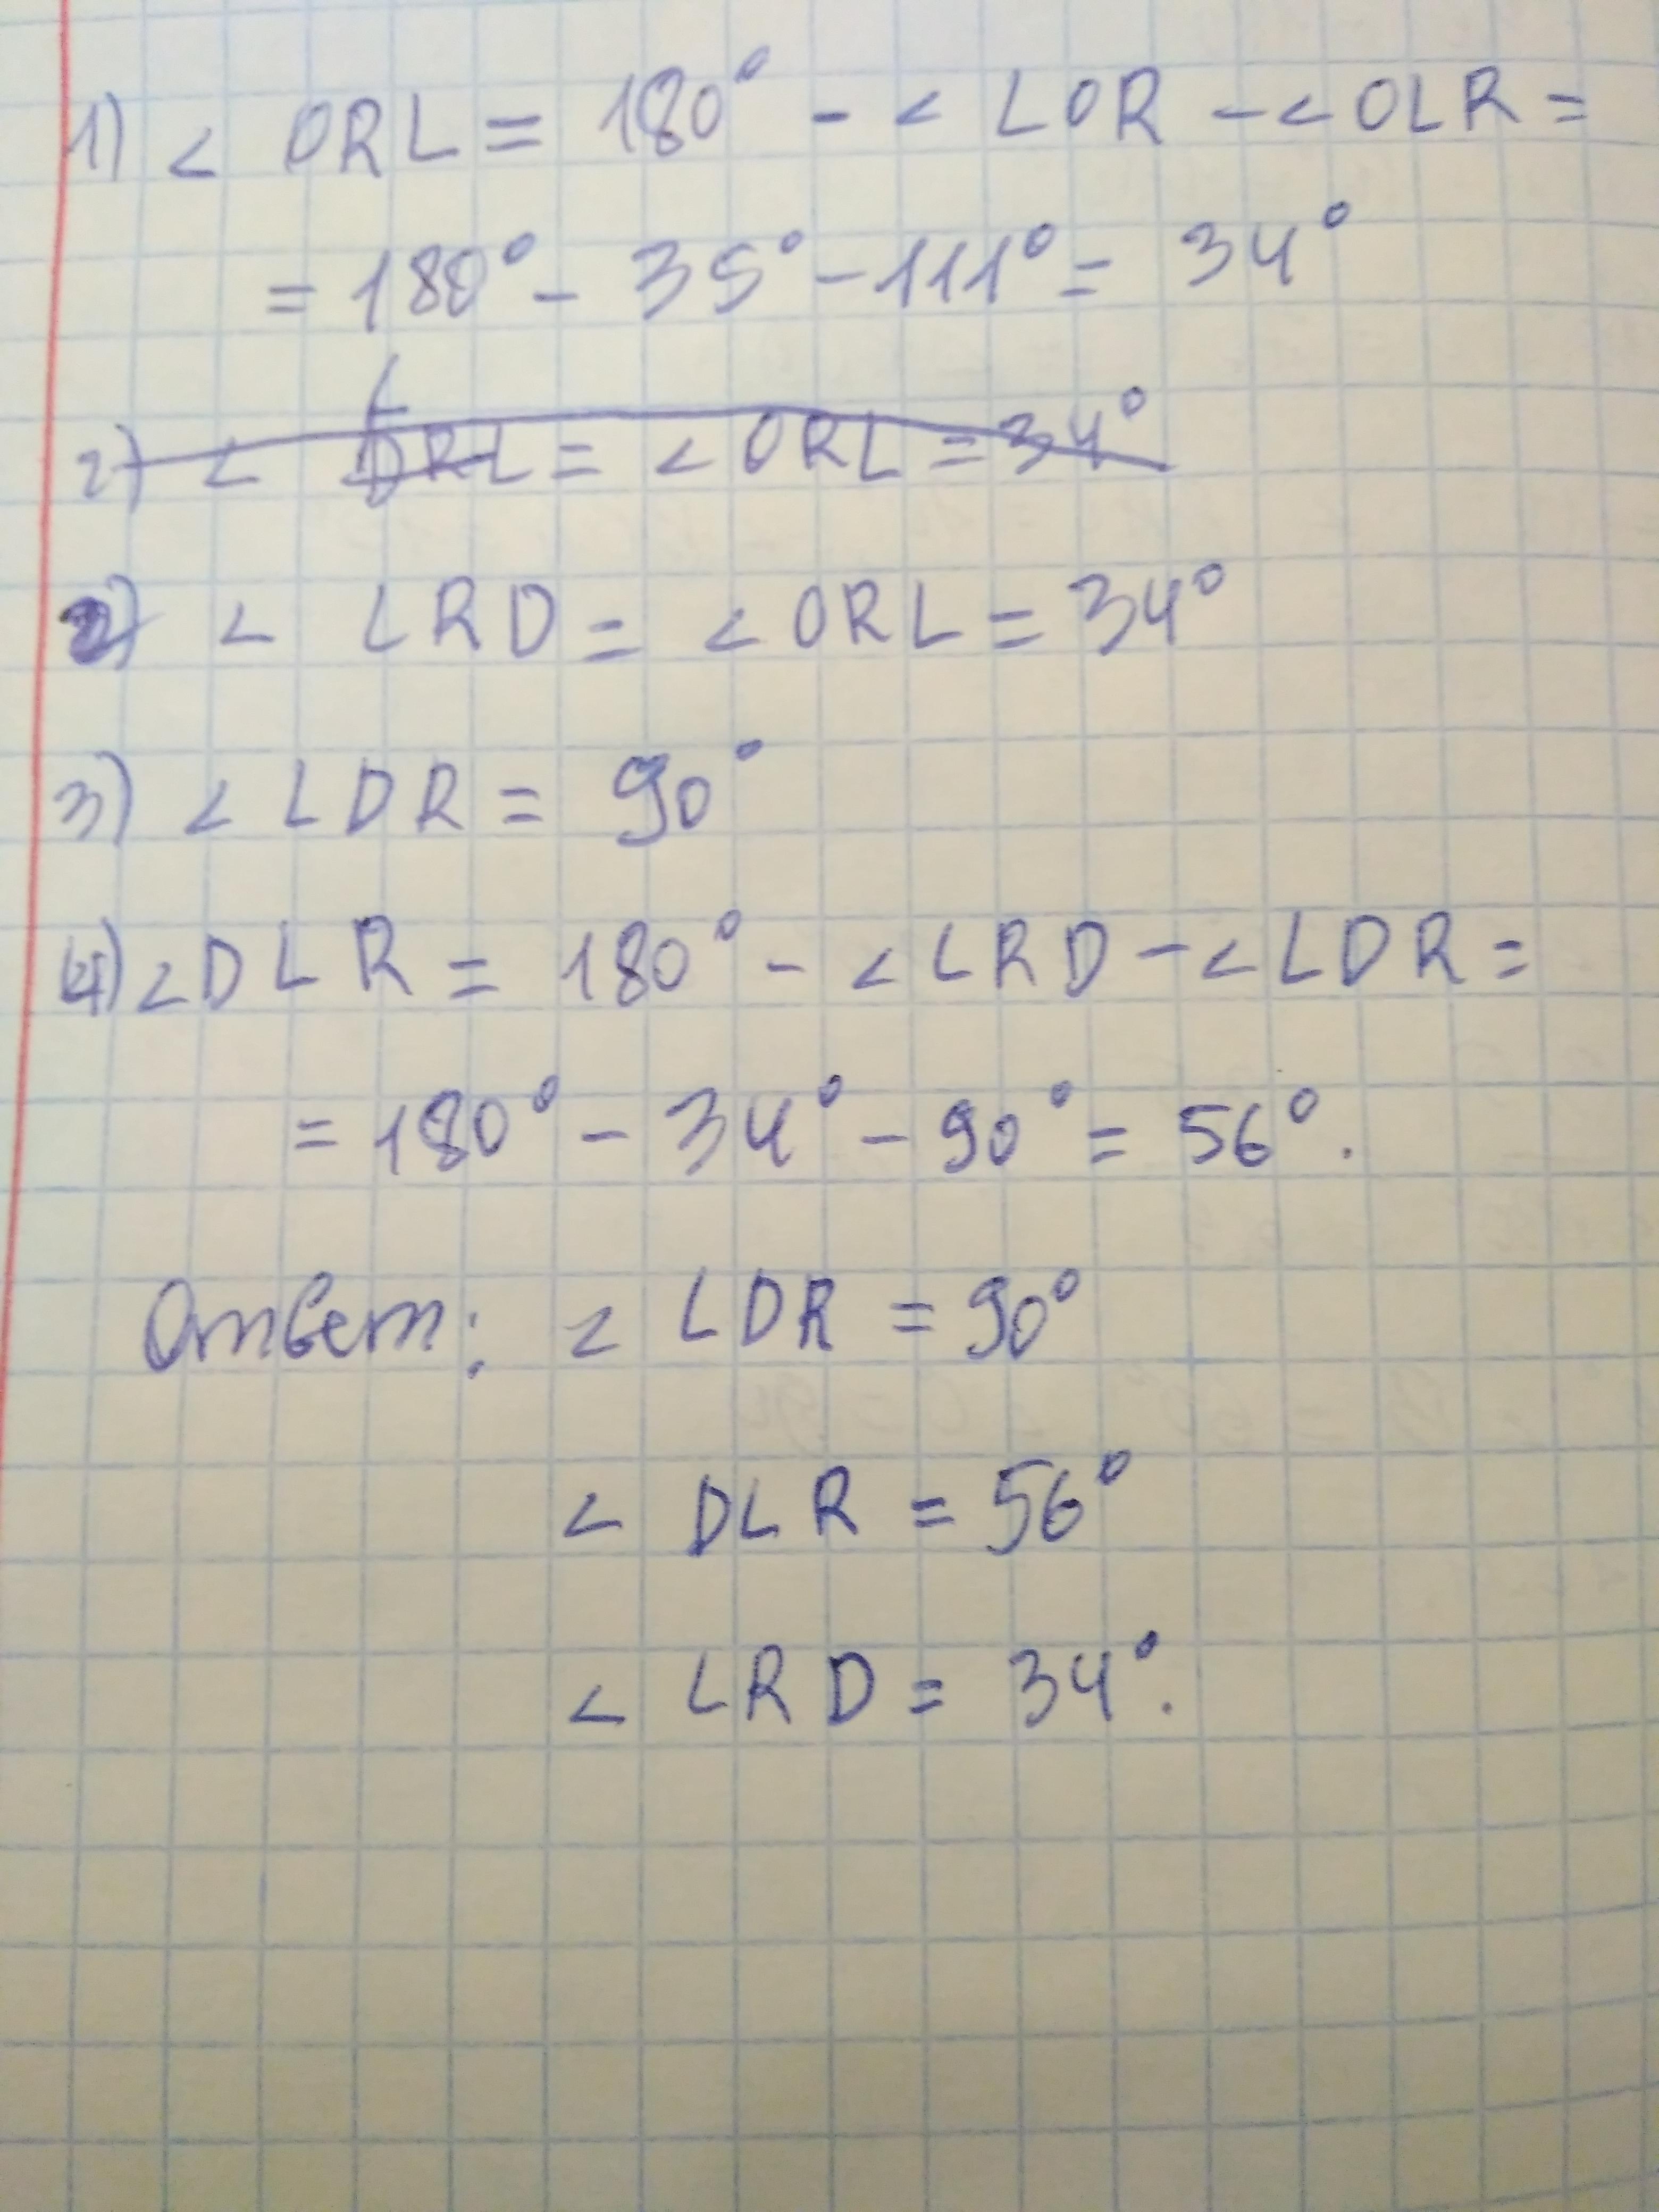 1) < ORL = 180° - < LOR - < OLR =
= 180° - 35° - 111° = 34°
2) < LRD = < ORL = 34°
3) < LDR = 90°
4) < DLR = 180° - < LRD - < LDR =
= 180° - 34° - 90° = 56°.
Ответ: < LDR = 90°
< DLR = 56°
< LRD = 34°.